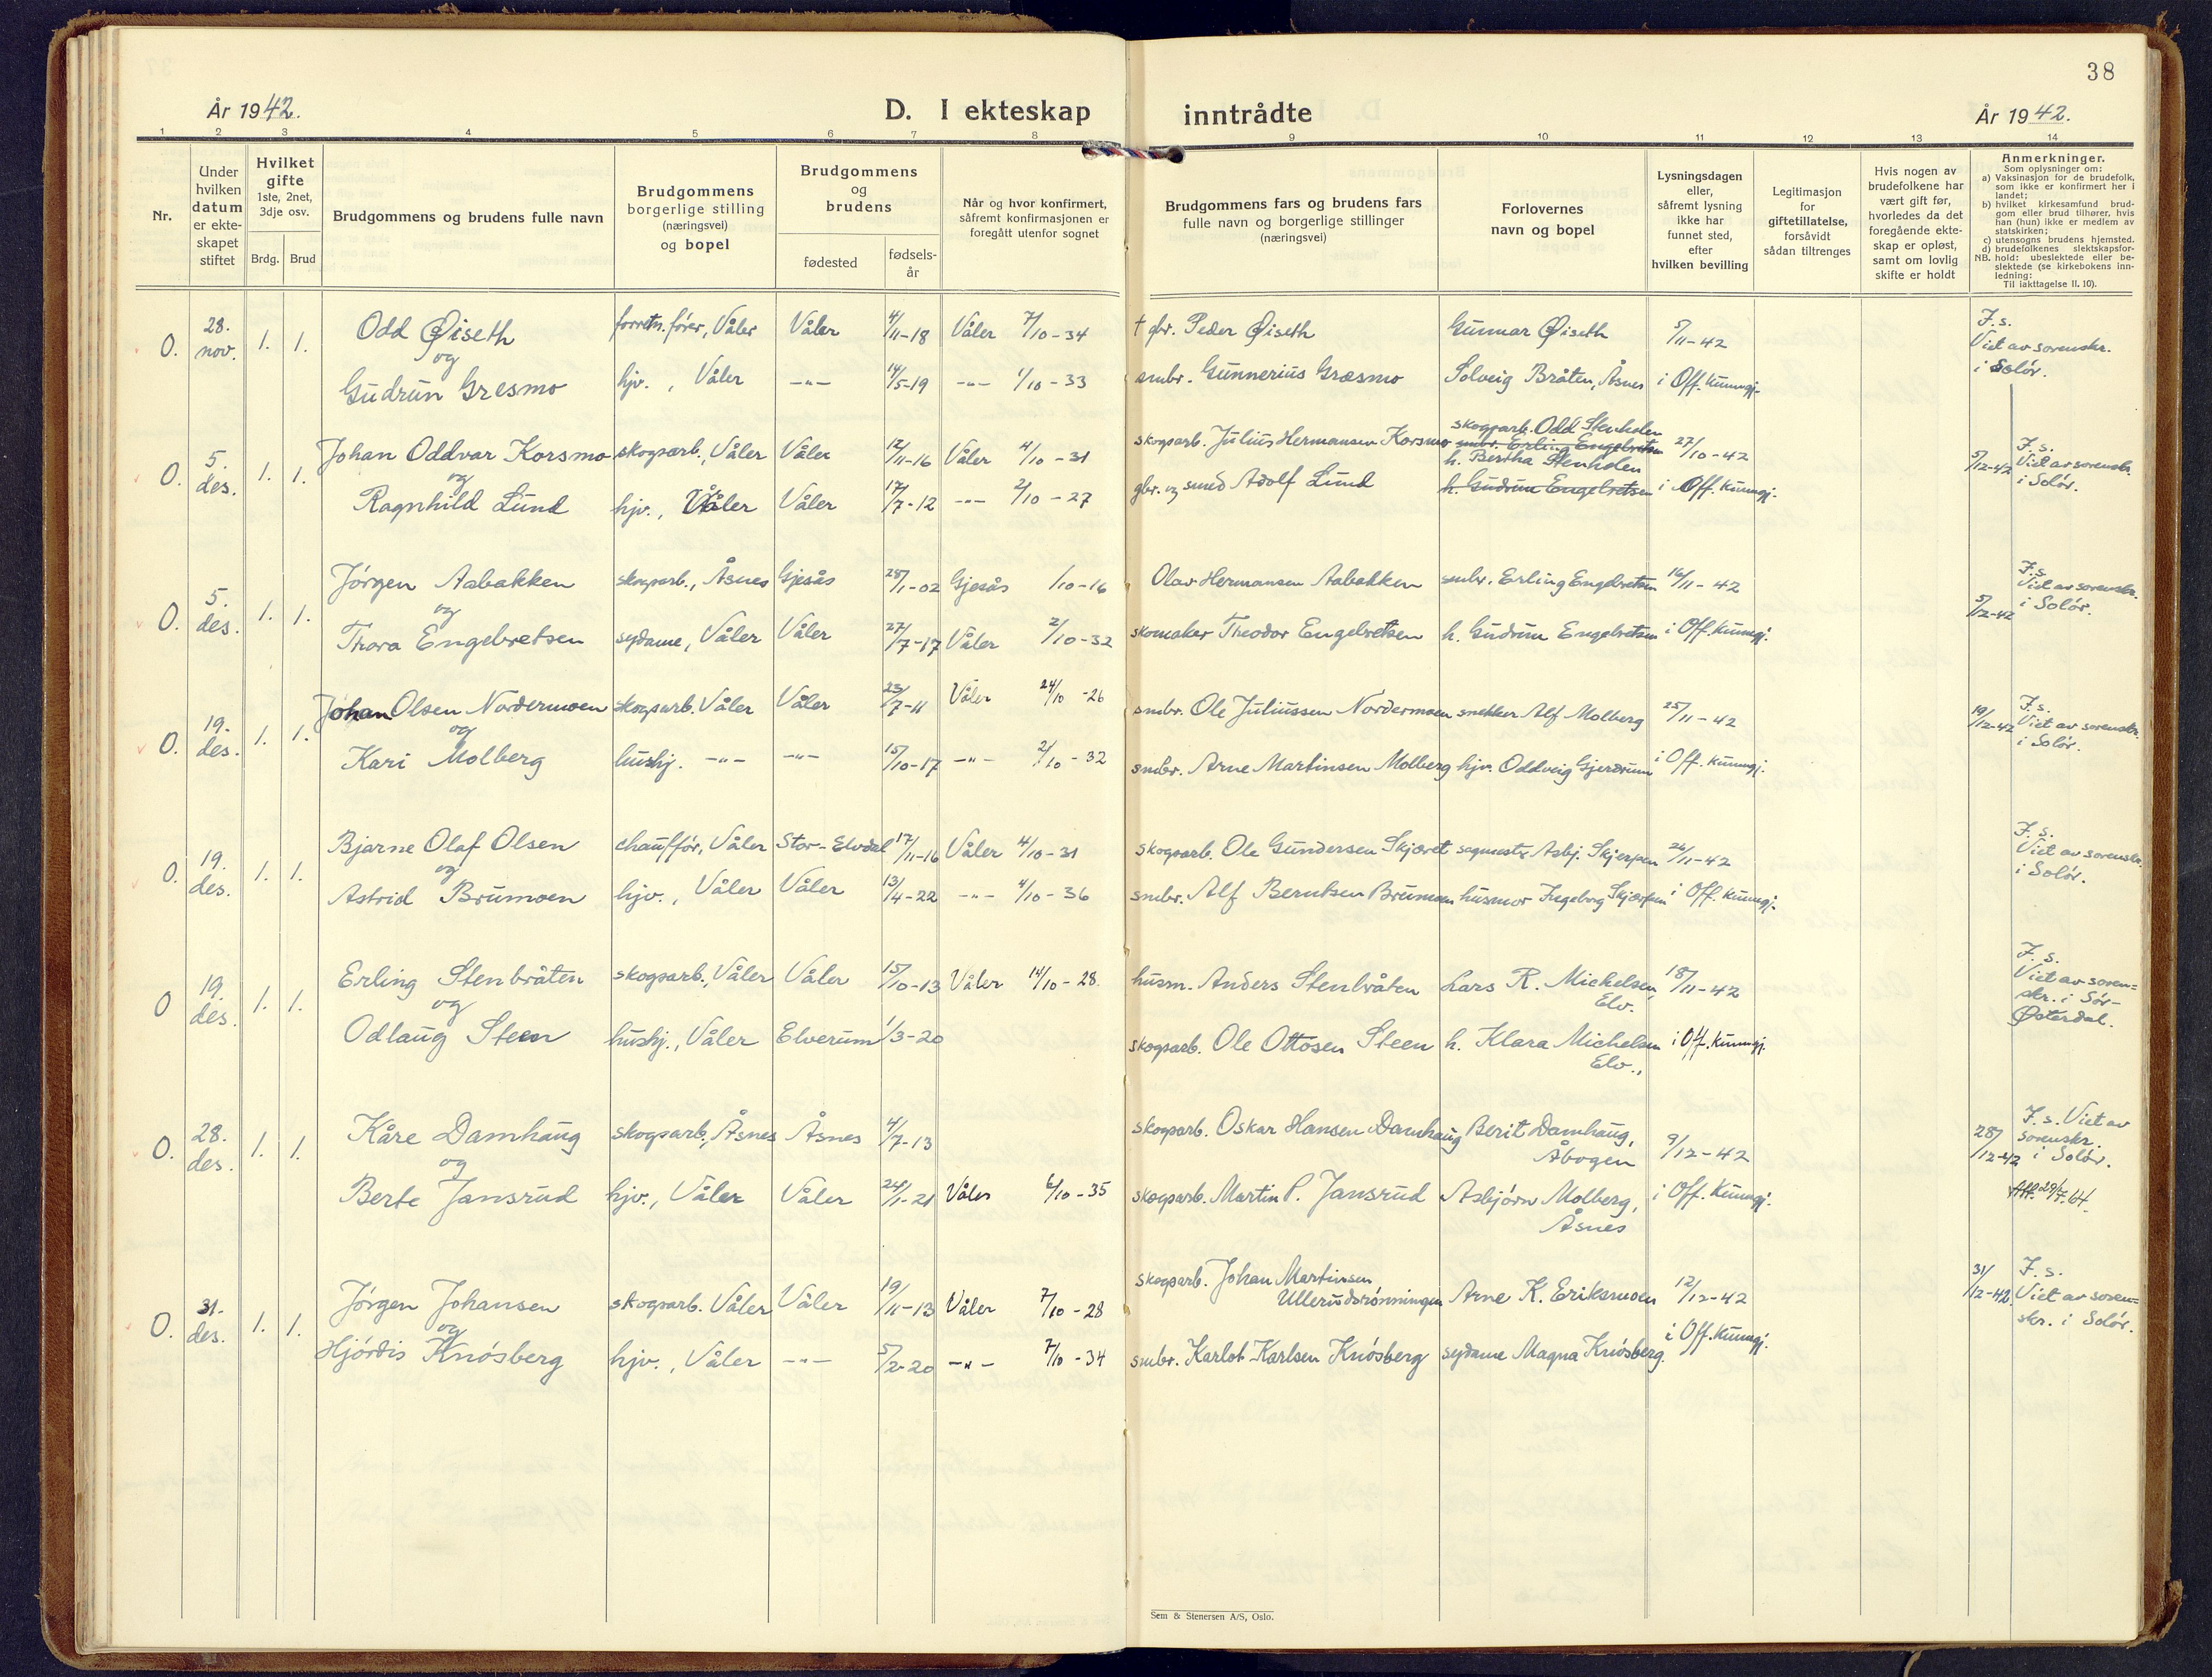 38
År 1942.
D. I ekteskap inntrådte
År 1942.
1 2 3 4 5 6 7 8 9 10 11 12 13 14
Nr.
Under hvilken datum er ekte-skapet stiftet
Hvilket gifte 1ste, 2net, 3dje osv.
Brdg. Brud
Brudgommens og brudens fulle navn
Brudgommens borgerlige stilling (næringsvei) og bopel
Brudgommens og brudens
fødested
fødsels-år
Når og hvor konfirmert, såfremt konfirmasjonen er foregått utenfor sognet
Brudgommens fars og brudens fars fulle navn og borgerlige stillinger (næringsvei)
Forlovernes navn og bopel
Lysningsdagen eller, såfremt lysning ikke har funnet sted, efter hvilken bevilling
Legitimasjon for giftetillatelse, forsåvidt sådan tiltrenges
Hvis nogen av brudefolkene har vært gift før, hvorledes da det foregående ekte-skap er opløst, samt om lovlig skifte er holdt
Anmerkninger.
Som oplysninger om:
a) Vaksinasjon for de brudefolk, som ikke er konfirmert her i landet;
b) hvilket kirkesamfund brud-gom eller brud tilhører, hvis han (hun) ikke er medlem av statskirken;
c) utensogns brudens hjemsted.
d) brudefolkenes slektskapsfor-hold: ubeslektede eller be-slektede (se kirkebokens inn-ledning:
NB.
Til iakttagelse II. 10).
O. 28. nov. 1. 1. Odd Øiseth forretn.fører, Våler Våler 4/11-18 Våler 7/10-34 † gbr. Peder Øiseth Gunnar Øiseth 5/11-42 F.s. Viet av sorenskr. i Solør.
og
Gudrun Gresmo hjv., Våler -"- 14/5-19 -"- 1/10-33 smbr. Gunnerius Græsmo Solveig Bråten, Åsnes i Off. kunngj.
O. 5. des. 1. 1. Johan Oddvar Korsmo skogsarb., Våler Våler 12/11-16 Våler 4/10-31 skogsarb. Julius Hermansen Korsmo skogsarb. Odd Stenholen smbr. Erling Engebretsen 27/10-42 5/12-42 F.s. Viet av sorenskr. i Solør.
og
Ragnhild Lund hjv., Våler Våler 17/7-12 -"- 2/10-27 gbr. og smed Adolf Lund h. Bertha Stenholen h. Gudrun Engebretsen i Off. kunngj.
O. 5. des. 1. 1. Jørgen Aabakken skogsarb., Åsnes Gjesås 28/1-02 Gjesås /10-16 Olav Hermansen Aabakken smbr. Erling Engebretsen 16/11-42 5/12-42 F.s. Viet av sorenskr. i Solør.
og
Thora Engebretsen sydame, Våler Våler 27/7-17 Våler 2/10-32 skomaker Theodor Engebretsen h. Gudrun Engebretsen i Off. kunngj.
O. 19. des. 1. 1. Johan Olsen Nordermoen skogsarb. Våler Våler 23/7-11 Våler 24/10-26 smbr. Ole Juliussen Nordermoen snekker Alf Molberg 25/11-42 19/12-42 F.s. Viet av sorenskr. i Solør.
og
Kari Molberg hushj. -"- -"- 15/10-17 -"- 2/10-32 smbr. Arne Martinsen Molberg hjv. Oddveig Gjerdrum i Off. kunngj.
O. 19. des. 1. 1. Bjarne Olaf Olsen chauffør, Våler Stor-Elvdal 17/11-16 Våler 4/10-31 skogsarb. Ole Gundersen Skjæret sagmestr. Asbj. Skjerpen 26/11-42 F.s. Viet av sorenskr. i Solør.
og
Astrid Brumoen hjv., Våler Våler 13/4-22 -"- 4/10-36 smbr. Alf Berntsen Brumoen husmor Ingeborg Skjærpen i Off. kunngj.
O 19. des. 1. 1. Erling Stenbråten skogsarb., Våler Våler 15/10-13 Våler 14/10-28. husm. Anders Stenbråten Lars R. Mickelsen, Elv. 18/11-42 F.s. Viet av soren-skr. i Sør-Østerdal.
og
Odlaug Steen hushj., Våler Elverum 1/3-20 skogsarb. Ole Ottosen Steen h. Klara Michelsen Elv., i Off. kunngj.
O. 28. des. 1. 1. Kåre Damhaug skogsarb., Åsnes Åsnes 4/7-13 skogsarb. Oskar Hansen Damhaug Berit Damhaug, Åbogen 9/12-42 28/12-42 F.s. Viet av sorenskr. i Solør.
og
Berte Jansrud hjv., Våler Våler 24/1-21 Våler 6/10-35 skogsarb. Martin P. Jansrud Asbjørn Molberg, Åsnes i Off. kunngj. Att. 29/7.64.
O. 31. des. 1. 1. Jørgen Johansen skogsarb. Våler Våler 19/11-13 Våler 7/10-28 skogsarb. Johan Martinsen Ullerudsrønningen Arne K. Eriksmoen 12/12-42 31/12-42. F.s. Viet av soren-skr. i Solør.
og
Hjørdis Knøsberg hjv., Våler -"- 5/2-20 -"- 7/10-34 smbr. Karlot Karlsen Knøsberg sydame Magna Knøsberg. i Off. kunngj.
Sem & Stenersen A/S, Oslo.